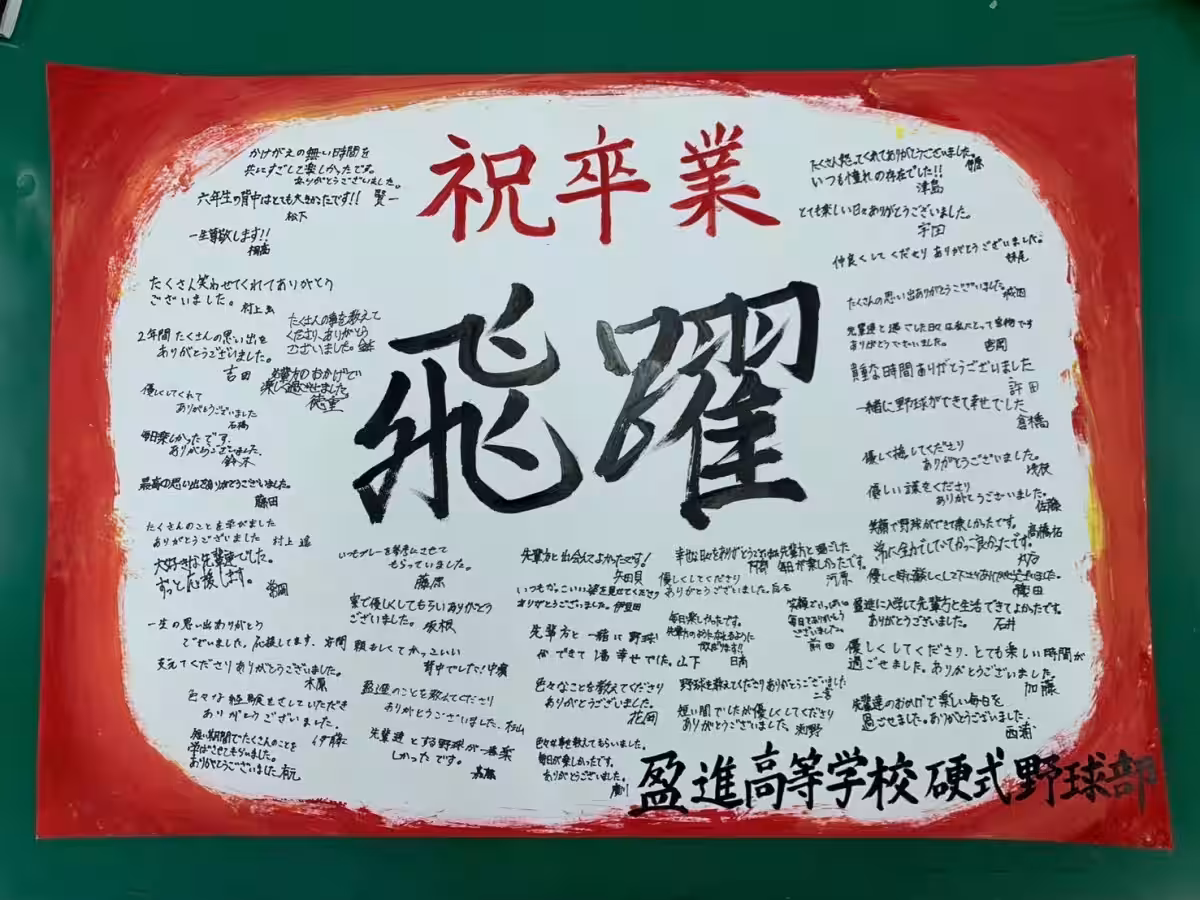 祝卒業
飛躍
かけがえの無い時間を
共にすごして楽しかったです。
ありがとうございました。
賢一
六年生の背中はとても大きかったです!!
松下
一生尊敬します!!
たくさん笑わせてくれてありがとう
ございました。村上
2年間たくさんの思い出を
ありがとうございました。
吉田
たくさんの事を教えて
くださり、ありがとう
ございました。
先輩方のおかげで
楽しく過ごせました
徳重
優しくしてくれて
ありがとうございました
石橋
毎日楽しかったです。
ありがとうございました。
鈴木
最高の思い出をありがとうございました。
藤田
たくさんのことを学びました
ありがとうございました 村上
大好きな先輩達でした。
ずっと応援します。
一生の思い出ありがとう
ございました。応援してます。
支えてくださりありがとうございました。
木原
色々な経験をさせていただき
ありがとうございました。
伊藤
短い期間でたくさんのことを
学ばさせてもらいました。
ありがとうございました 有元
いつもプレーを参考にさせて
もらっていました。
藤原
寮で優しくしてもらいありがとう
ございました。
頼もしくてかっこいい
背中でした!
盈進のことを教えてくださり
ありがとうございました、杉山
先輩達とする野球が一番楽
しかったです。
先輩方と出会えてよかったです!
矢田貝
いつもかっこいい姿を見せてくださり
ありがとうございました。伊豆田
先輩方と一緒に野球
ができて幸せでした。山下
色々なことを教えてくださり
ありがとうございました。
花岡
色々な事を教えてもらいました。
毎日が楽しかったです。
ありがとうございました。
幸せな日々をありがとうございました
優しくしてくださり
ありがとうございました。
先輩方と過ごした
毎日が楽しかったです。
河原
毎日楽しかったです。
先輩方のようになれるように
がんばります!!
日高
笑顔でいっぱいの
毎日をありがとう
ございました。
前田
野球を教えてくださりありがとうございました
二宮
短い間でしたが優しくしてくださり
ありがとうございました。
たくさん話してくれてありがとうございました。
いつも憧れの存在でした!!
津島
とても楽しい日々ありがとうございました。
宇田
仲良くしてくださりありがとうございました。
妹尾
たくさんの思い出ありがとうございました。
先輩達と過ごした日々は私にとって宝物です
ありがとうございました。
貴重な時間ありがとうございました
許田
一緒に野球ができて幸せでした
倉橋
優しく接してくださり
ありがとうございました。
優しい言葉をくださり
ありがとうございました。
佐藤
笑顔で野球ができて楽しかったです。
優しく時に厳しくして下さりありがとうございました。
盈進に入学して先輩方と生活できてよかったです。
ありがとうございました。
石井
優しくしてくださり、とても楽しい時間が
過ごせました。ありがとうございました。
加藤
先輩達のおかげで楽しい毎日を
過ごせました。ありがとうございました。
西浦
盈進高等学校硬式野球部